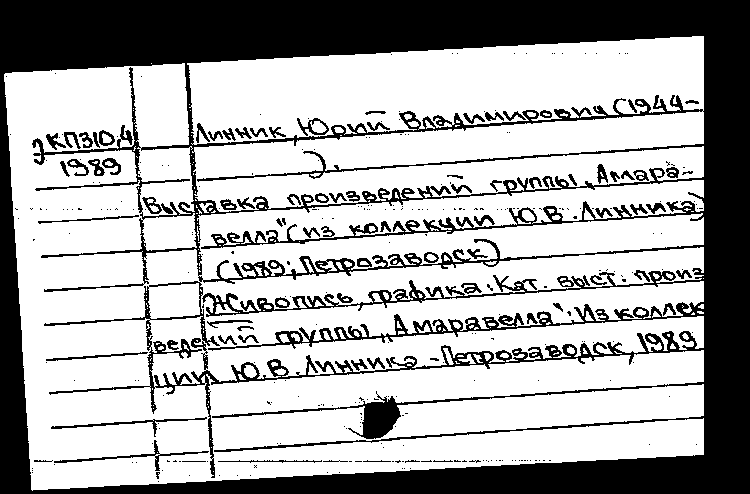 ЭКП310,4 Линник, Юрий Владимирович (1944-
1989 ).
Выставка произведений группы „Амара-
велла" (из коллекции Ю.В. Линника)
(1989; Петрозаводск).
Живопись, графика: Кат. выст. произ
ведений группы „Амаравелла": Из коллек
ции Ю.В. Линника. - Петрозаводск, 1989